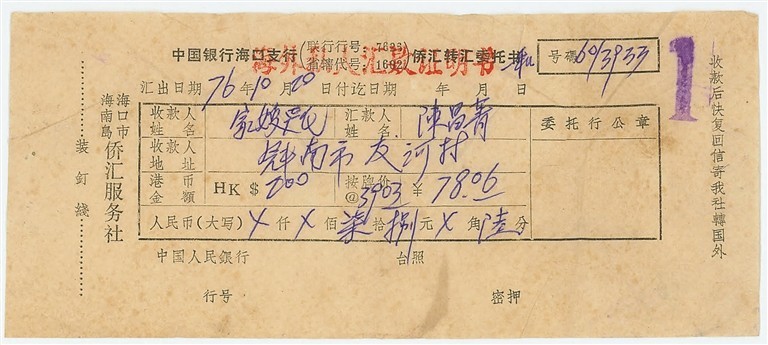 中国银行海口支行(联行行号:7823 省辖代号:1602)侨汇转汇委托书
海外私人汇款证明书
号碼 60/3933
1
汇出日期 76年10月20日付讫日期 年 月 日
收款人姓名 汇款人姓名 陳昌菁
委托行公章
收款人地址 南市友河村
港币金額 HK$ 200 按牌价@ 3903 ¥ 78.06
人民币(大写) X仟X佰柒拾捌元X角陆分
中国人民銀行 台照
行号 密押
海口市
海南島
侨汇服务社
装釘綫
收款后快复回信寄我社轉国外